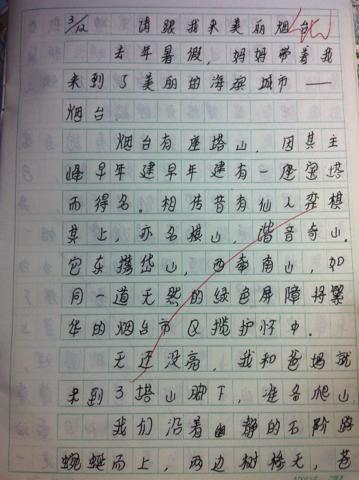 3/12 请跟我来美丽烟台
去年暑假，妈妈带着我
来到了美丽的海滨城市——
烟台
烟台有座塔山，因其主
峰早年建早年建有一座宝塔
而得名。相传昔有仙人弈棋
其上，亦名棋山，谐音奇山。
它东携岱山，西牵南山，如
同一道天然的绿色屏障将繁
华的烟台市区揽护怀中。
天还没亮，我和爸妈就
来到了塔山脚下，准备爬山。
我们沿着幽静的石阶路
蜿蜒而上，两边树椅天，苍